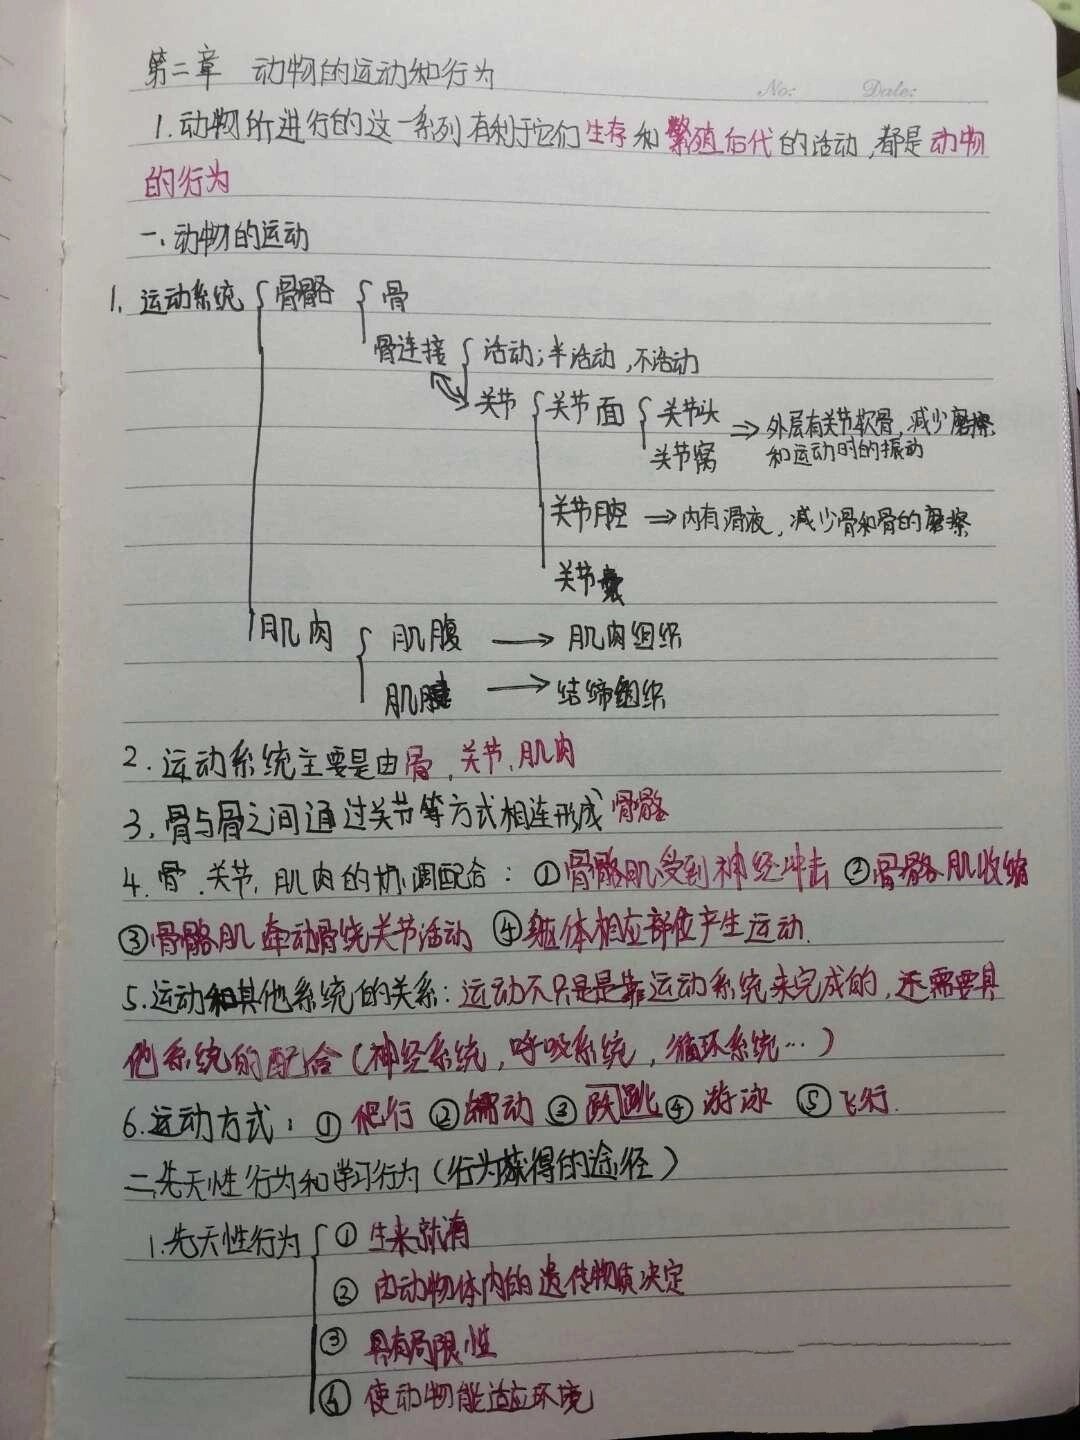 第二章 动物的运动和行为
No: Date:
1.动物所进行的这一系列有利于它们生存和繁殖后代的活动,都是动物
的行为
一、动物的运动
1. 运动系统 骨骼 骨
骨连接 活动;半活动,不活动
关节 关节面 关节头 ⇒ 外层有关节软骨,减少磨擦
关节窝 和运动时的振动
关节腔 ⇒ 内有滑液,减少骨和骨的磨擦
关节囊
肌肉 肌腹 → 肌肉组织
肌腱 → 结缔组织
2.运动系统主要是由骨,关节,肌肉
3.骨与骨之间通过关节等方式相连形成骨骼
4.骨.关节,肌肉的协调配合:①骨骼肌受到神经冲击②骨骼肌收缩
③骨骼肌牵动骨绕关节活动 ④躯体相应部位产生运动.
5.运动和其他系统的关系:运动不只是是靠运动系统来完成的,还需要其
他系统的配合(神经系统,呼吸系统,循环系统…)
6.运动方式:①爬行②蠕动③跃跳④游泳 ⑤飞行.
二、先天性行为和学习行为(行为获得的途径)
1.先天性行为 ①生来就有
②由动物体内的遗传物质决定
③具有局限性
④使动物能适应环境